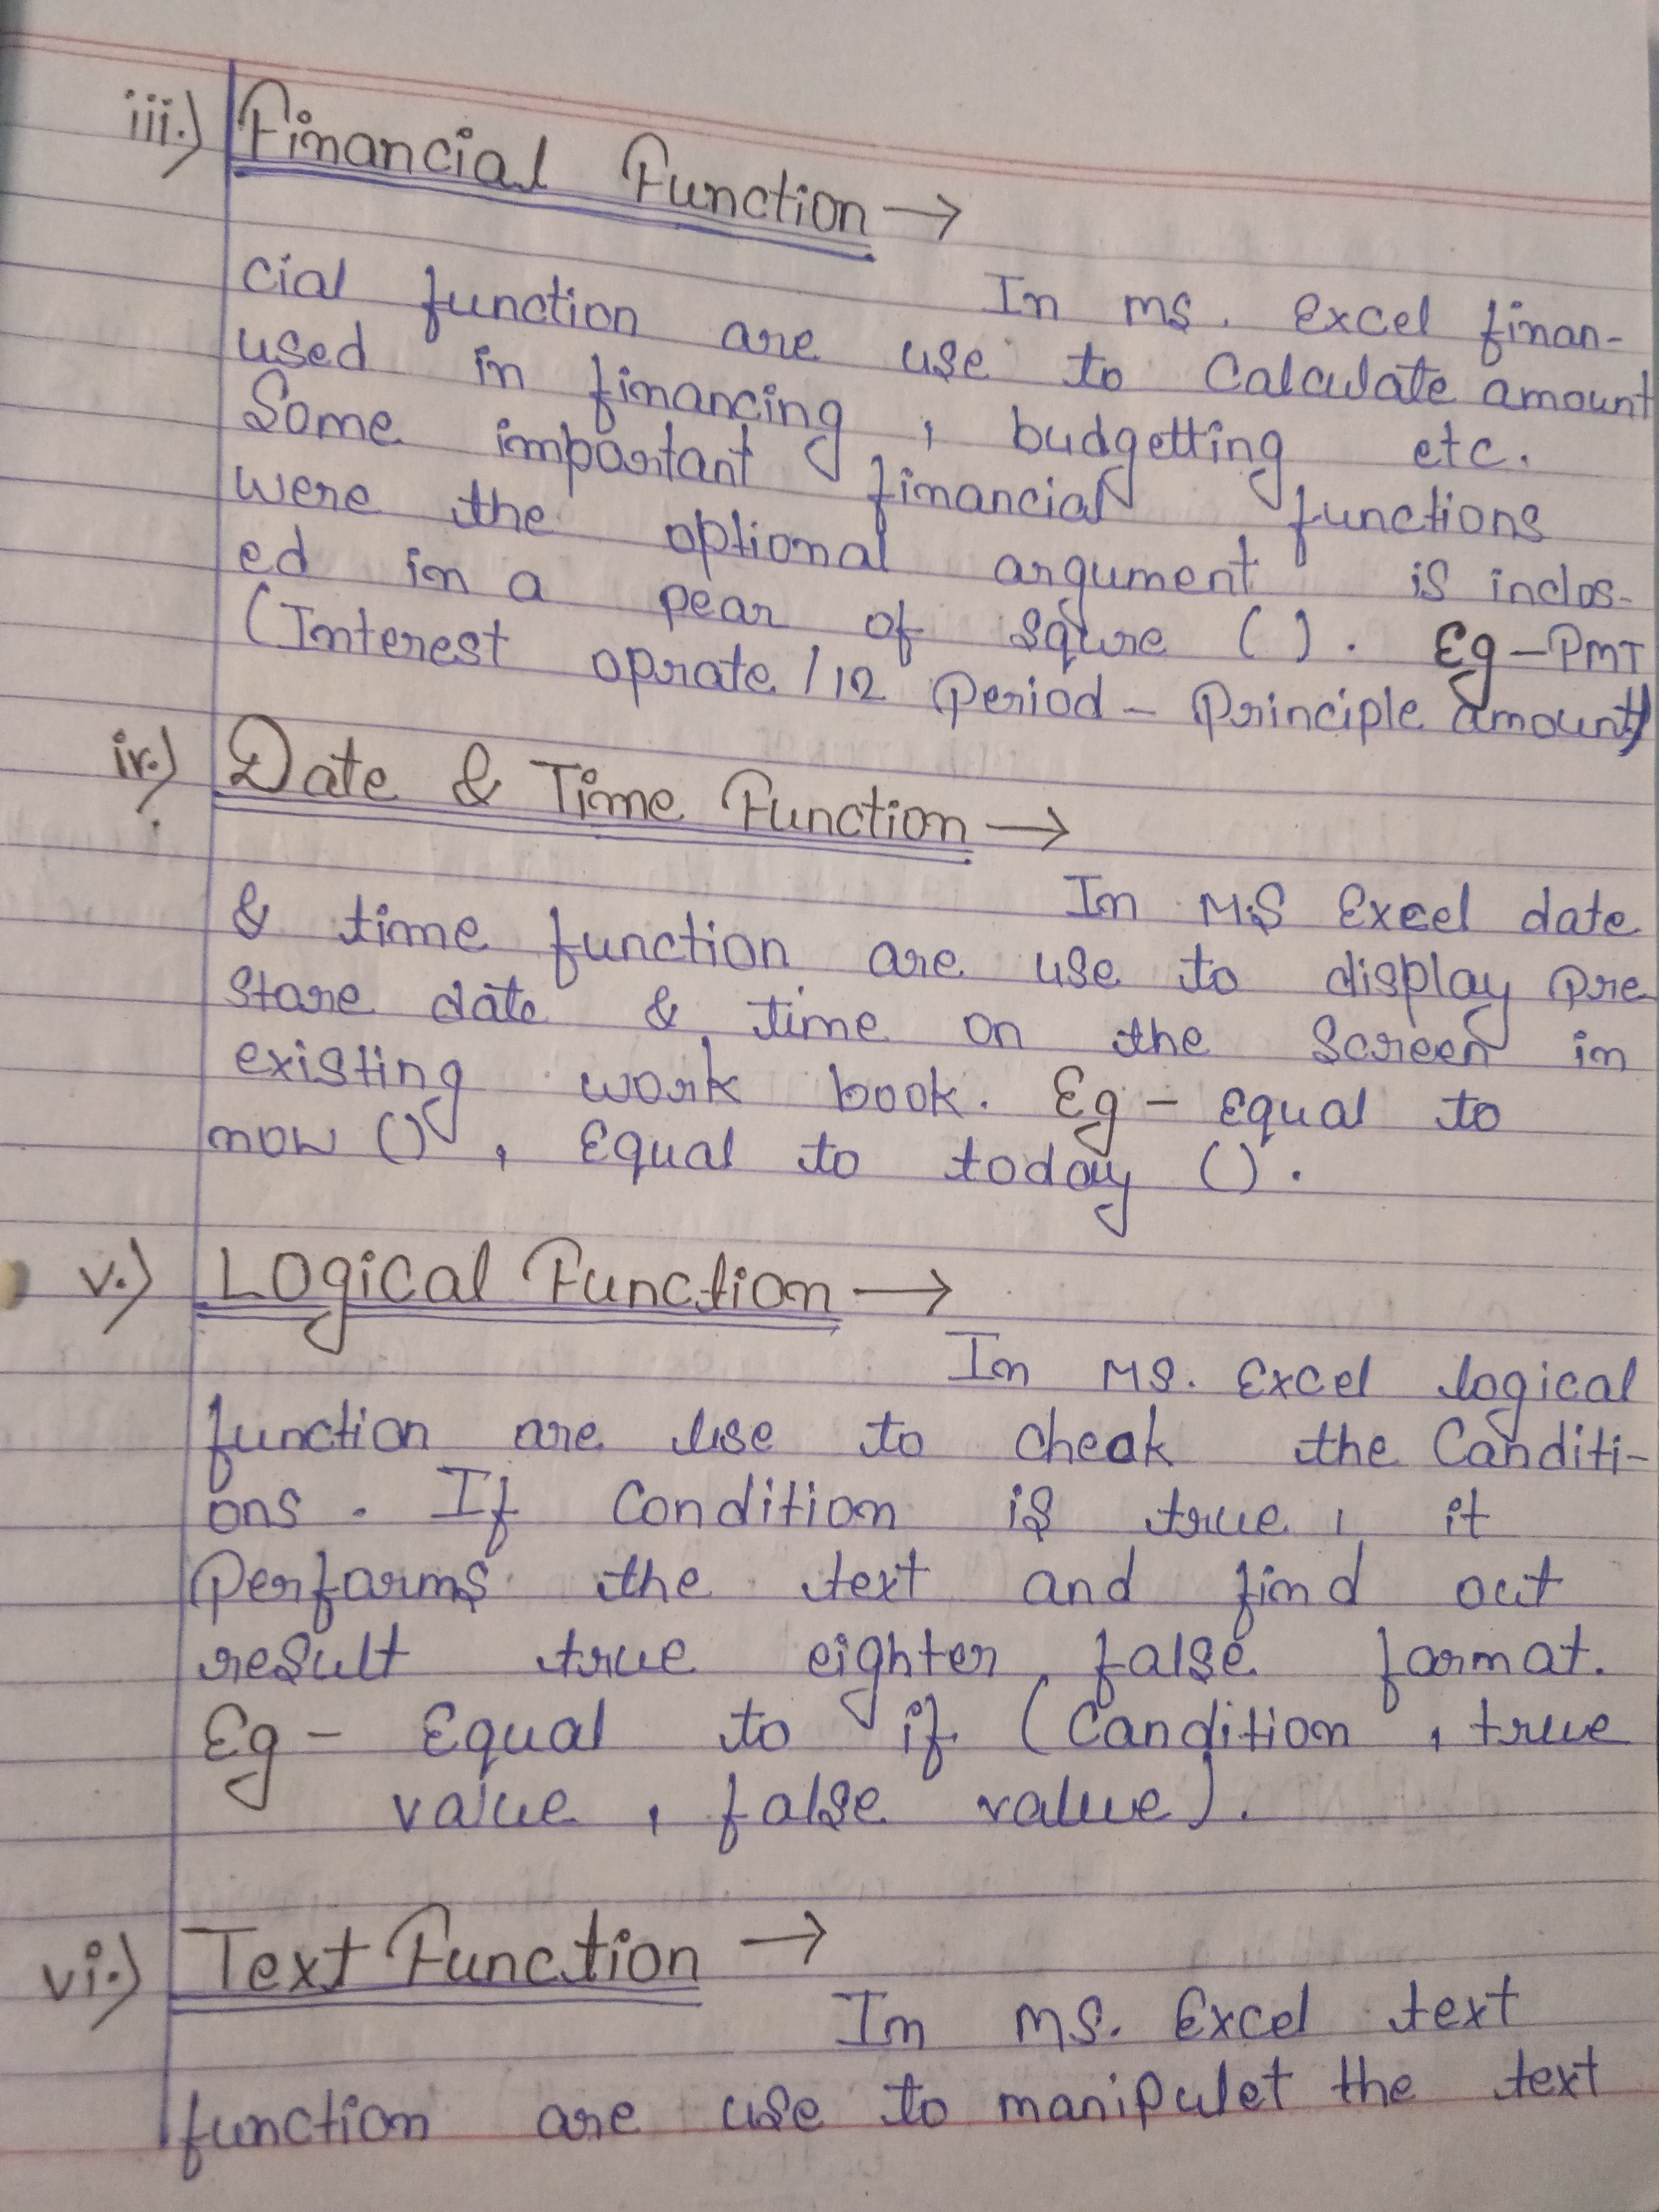 iii.) Financial Function →
In ms. Excel finan-
cial function are use to Calculate amount
used in financing, budgetting etc.
Some important financial functions
were the optional argument is inclos-
ed in a pear of squre ( ). Eg - PMT
(Interest oprate / 12 Period - Principle amount)
iv.) Date & Time Function →
In M.S Excel date
& time function are use to display pre
stare date & time on the screen in
existing work book. Eg - Equal to
now (), Equal to today ().
v.) Logical Function →
In MS. Excel logical
function are use to cheak the Canditi-
ons. If Condition is true, it
Performs the text and find out
result true eighter false format.
Eg - Equal to if (Candition, true
value, false value).
vi.) Text Function →
In MS. Excel text
function are use to manipulet the text